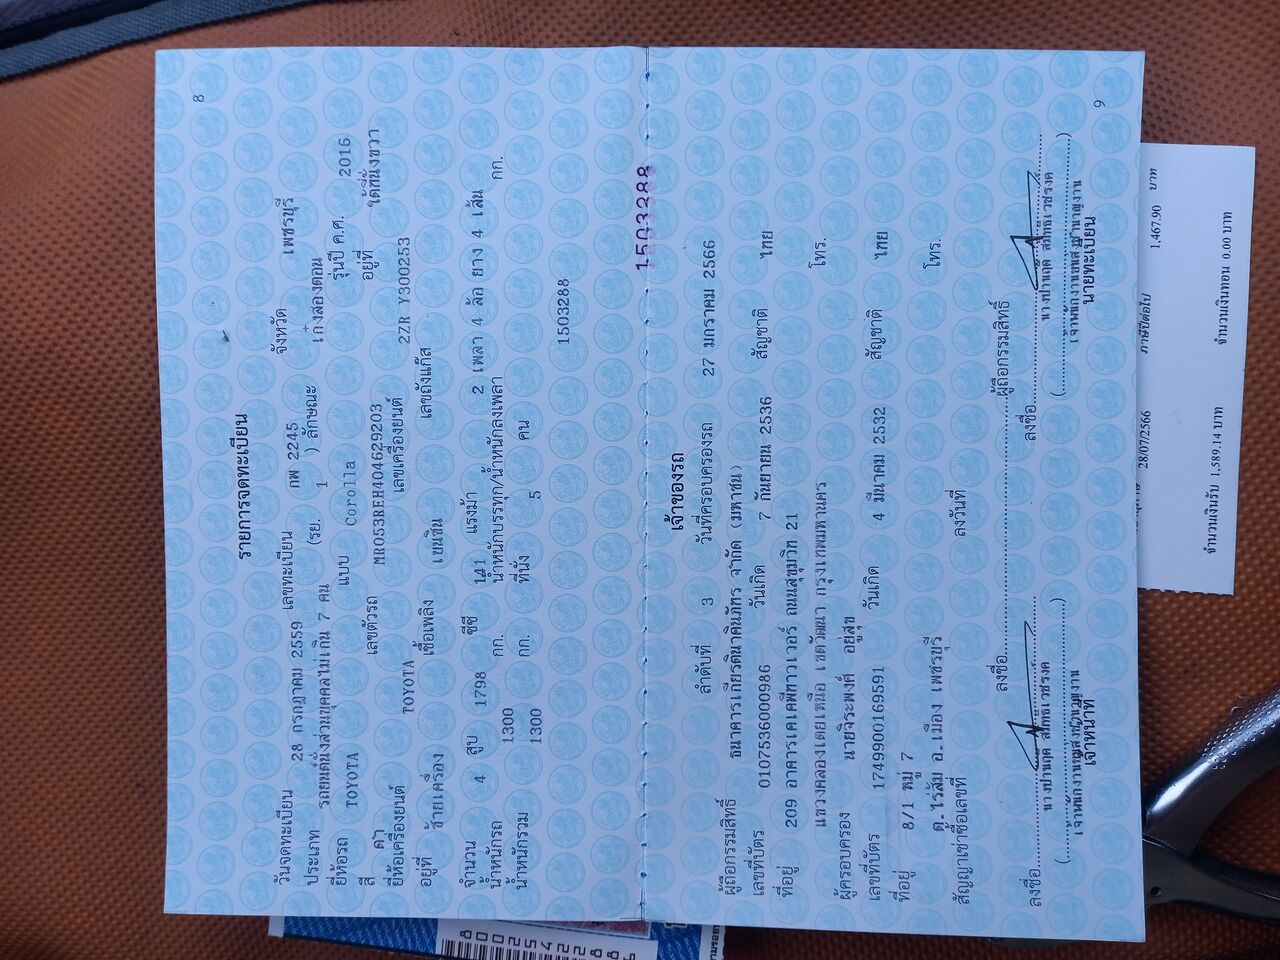 8
รายการจดทะเบียน
วันจดทะเบียน 28 กรกฎาคม 2559 เลขทะเบียน กพ 2245 จังหวัด เพชรบุรี
ประเภท รถยนต์นั่งส่วนบุคคลไม่เกิน 7 คน (รย. 1 ) ลักษณะ เก๋งสองตอน
ยี่ห้อรถ TOYOTA แบบ Corolla รุ่นปี ค.ศ. 2016
สี ดำ เลขตัวรถ MR053REH404629203 อยู่ที่ ใต้ที่นั่งขวา
ยี่ห้อเครื่องยนต์ TOYOTA เลขเครื่องยนต์ 2ZR Y300253
อยู่ที่ ซ้ายเครื่อง เชื้อเพลิง เบนซิน เลขถังแก๊ส
จำนวน 4 สูบ 1798 ซีซี 141 แรงม้า 2 เพลา 4 ล้อ ยาง 4 เส้น
น้ำหนักรถ 1300 กก. น้ำหนักบรรทุก/น้ำหนักลงเพลา กก.
น้ำหนักรวม 1300 กก. ที่นั่ง 5 คน
1503288
1503288
เจ้าของรถ
ลำดับที่ 3 วันที่ครอบครองรถ 27 มกราคม 2566
ผู้ถือกรรมสิทธิ์ ธนาคารเกียรตินาคินภัทร จำกัด (มหาชน)
เลขที่บัตร 0107536000986 วันเกิด 7 กันยายน 2536 สัญชาติ ไทย
ที่อยู่ 209 อาคารเคเคพีทาวเวอร์ ถนนสุขุมวิท 21
แขวงคลองเตยเหนือ เขตวัฒนา กรุงเทพมหานคร โทร.
ผู้ครอบครอง นายจิระพงค์ อยู่สุข
เลขที่บัตร 1749900169591 วันเกิด 4 มีนาคม 2532 สัญชาติ ไทย
ที่อยู่ 8/1 หมู่ 7
ต.ไร่ส้ม อ.เมือง เพชรบุรี โทร.
สัญญาเช่าซื้อเลขที่ ลงวันที่
ลงชื่อ ผู้ถือกรรมสิทธิ์
ลงชื่อ ลงชื่อ
เจ้าหน้าที่ นายทะเบียน
9
28/07/2566 ภาษีปีต่อไป 1,467.90 บาท
จำนวนเงินรับ 1,589.14 บาท จำนวนเงินทอน 0.00 บาท